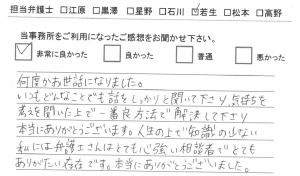 担当弁護士 □江原 □黒澤 □星野 □石川 ☑若生 □松本 □高野
当事務所をご利用になったご感想をお聞かせ下さい。
☑ 非常に良かった □ 良かった □ 普通 □ 悪かった
何度かお世話になりました。
いつもどんなことでも話をしっかりと聞いて下さり、気持ちを
考えを聞いた上で一番良い方法で解決して下さり
本当にありがとうございます。人生の上で知識の少ない
私には弁護士さんはとても心強い相談者でとても
ありがたい存在です。本当にありがとうございました。